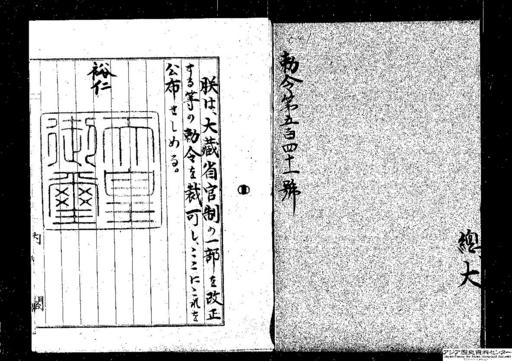 勅令第五百四十一號
總大
朕は、大藏省官制の一部を改正
する等の勅令を裁可し、ここにこれを
公布せしめる。
裕仁
天皇
御璽
内閣
アジア歴史資料センター